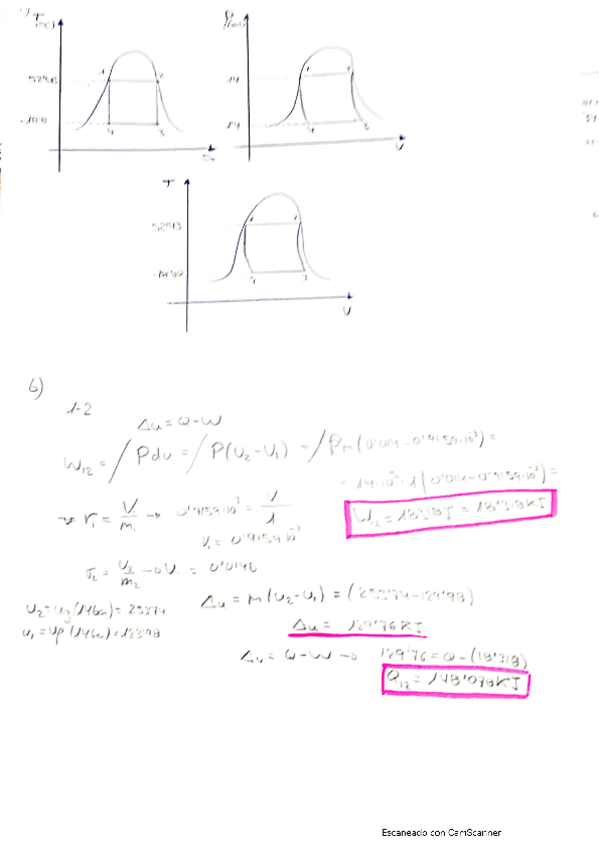 T
P
52'43
14
1'4
4
3
V
T
52'43
V
b)
1-2
Δu = Q-W
W₁₂ = ∫ Pdv = ∫ P(V₂-V₁) = ∫ P m (0'014-0'9159·10⁻³) =
= 14·10⁵·1 (0'014-0'9159·10⁻³) =
W₁₂ = 18318 J = 18'318 KJ
v₁ = V₁/m₁ → 0'9159·10⁻³ = V/1
V₁ = 0'9159·10⁻³
v₂ = V₂/m₂ → V₂ = 0'0140
U₂ = Ug (14bar) = 253'74
Δu = m(U₂-U₁) = (253'74-123'98)
U₁ = Uf (14bar) = 123'98
Δu = 129'76 KJ
Δu = Q-W → 129'76 = Q-(18'318)
Q₁₂ = 148'078 KJ
Escaneado con CamScanner